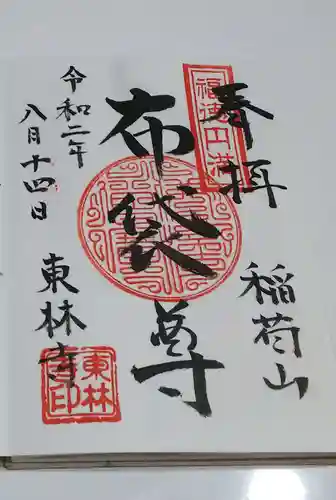 奉拝
福徳円満
稲荷山
布袋尊
令和二年
八月十四日
東林寺
東林
寺印